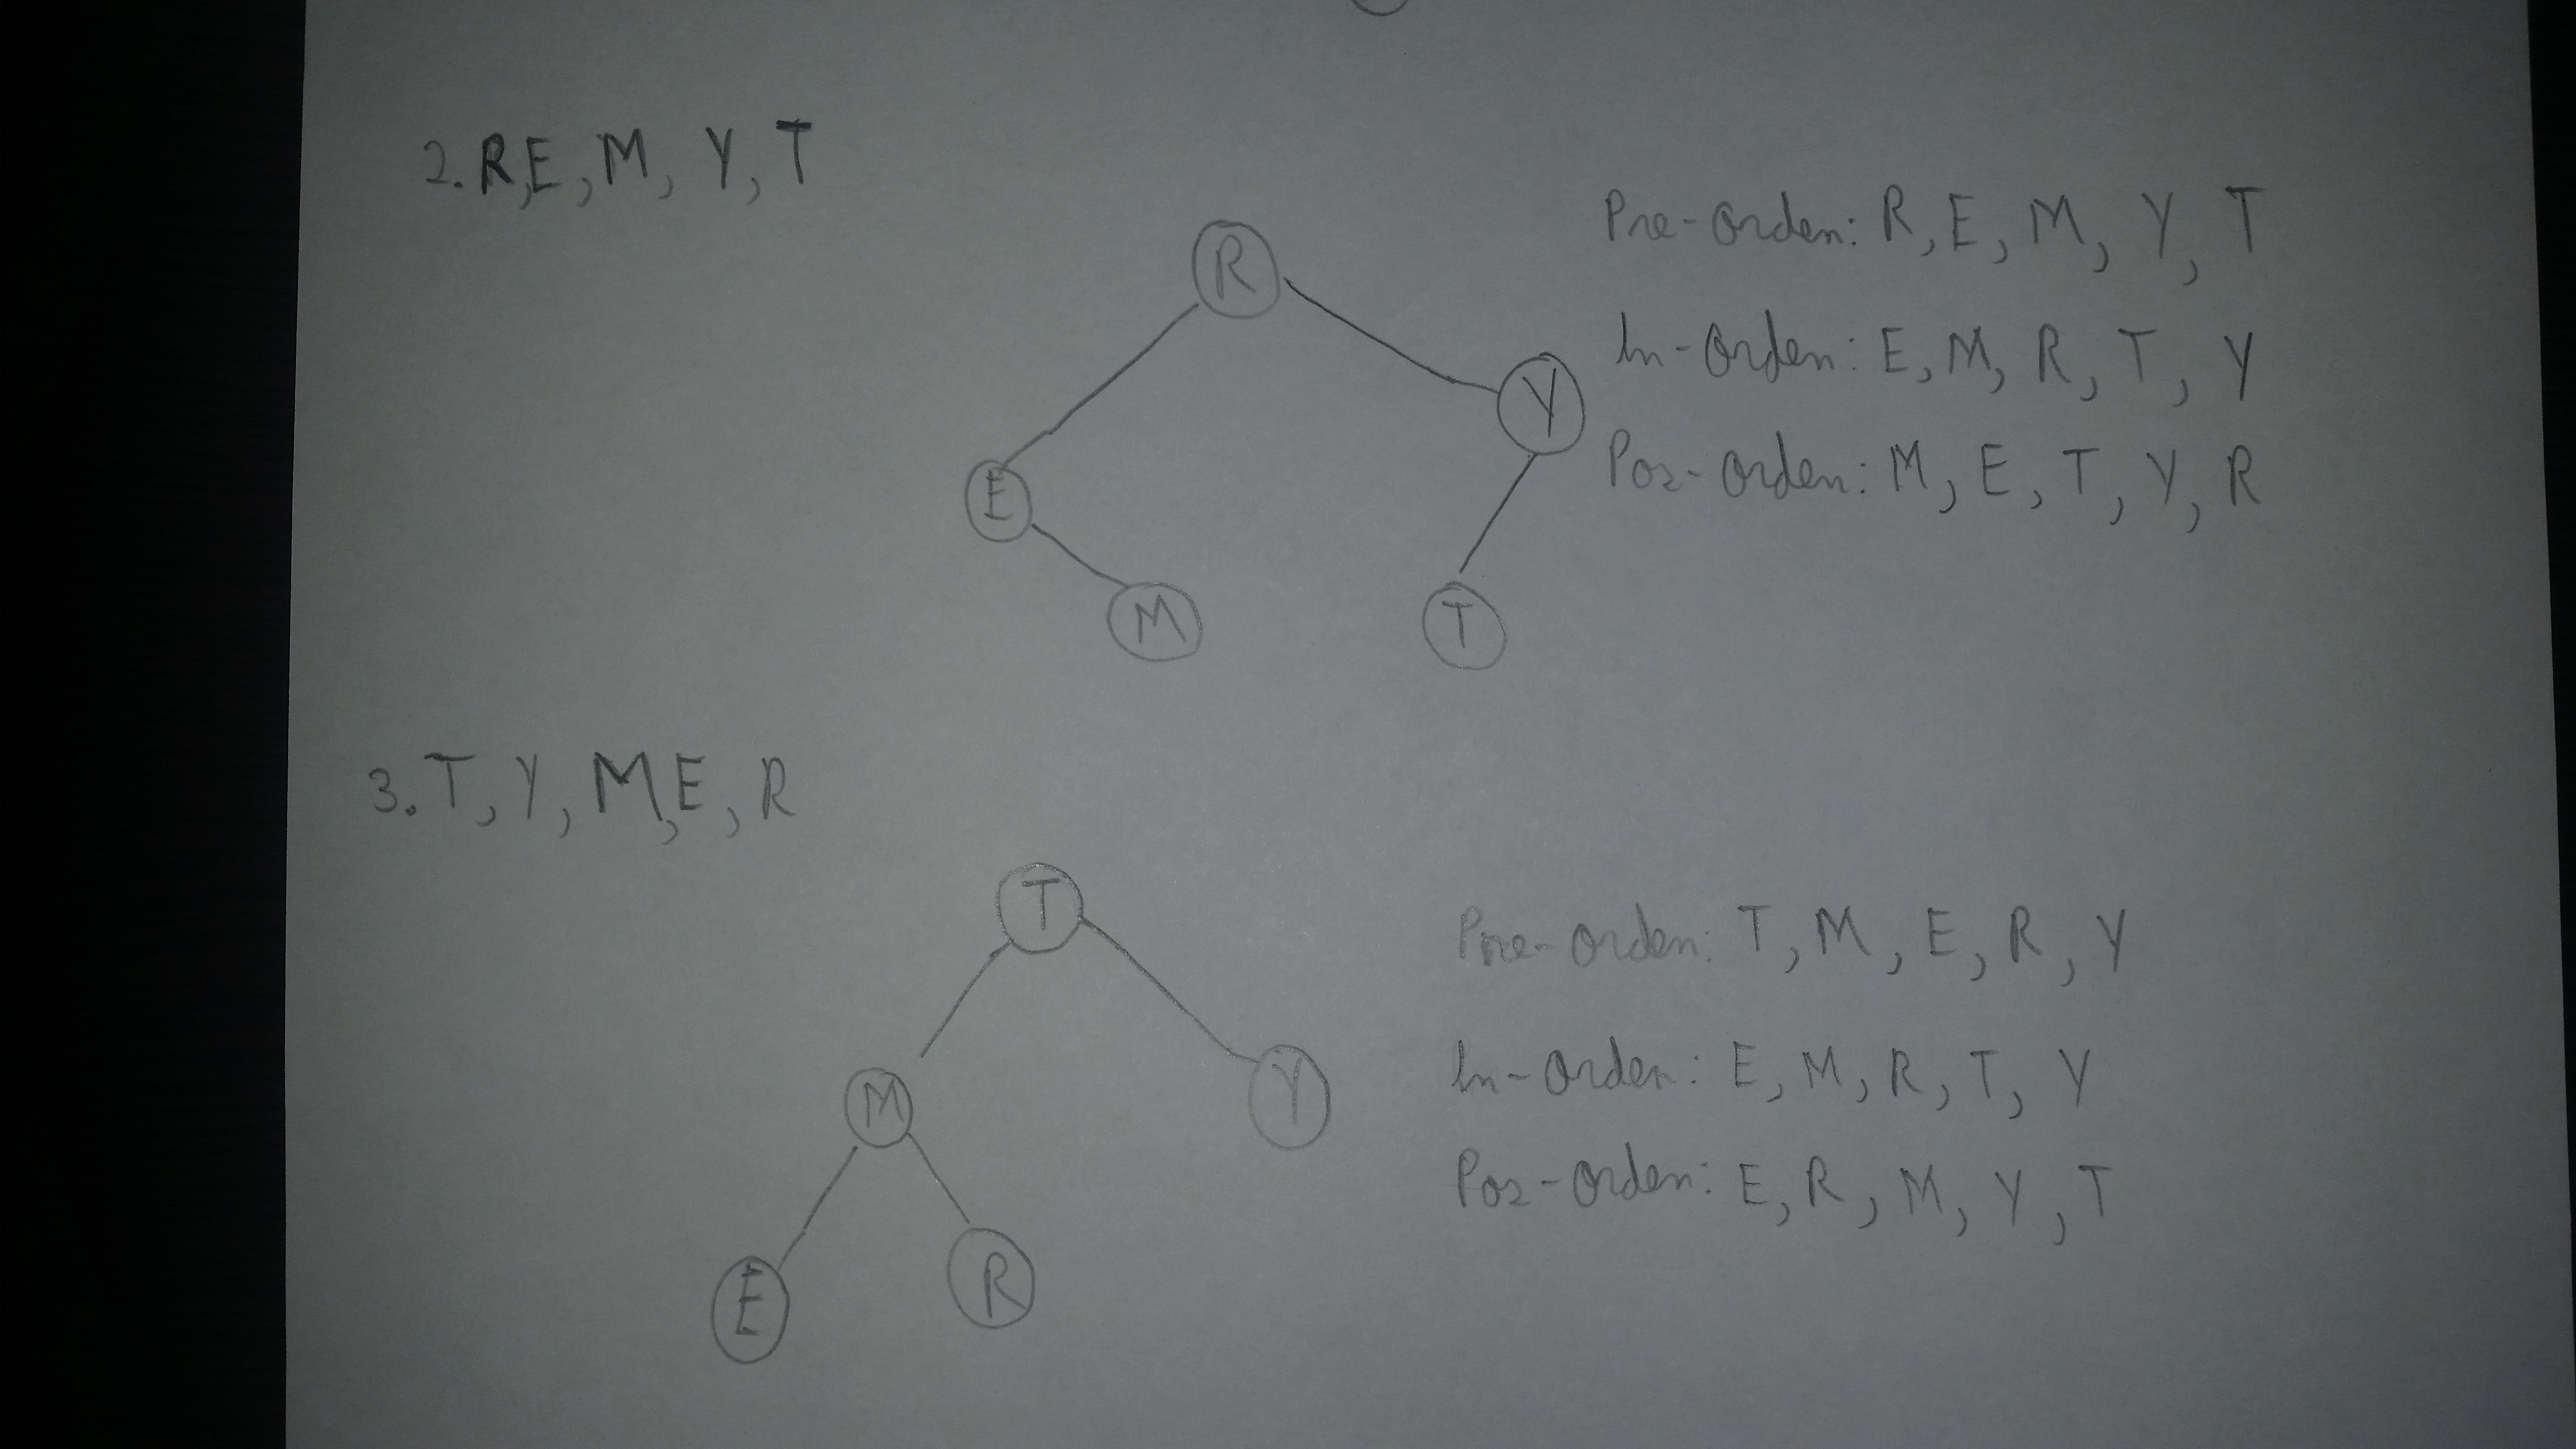 2. R,E, M, Y, T
R
E
Y
M
T
Pre-orden: R, E, M, Y, T
In-orden: E, M, R, T, Y
Pos-orden: M, E, T, Y, R
3. T, Y, M, E, R
T
M
Y
E
R
Pre-orden: T, M, E, R, Y
In-orden: E, M, R, T, Y
Pos-orden: E, R, M, Y, T